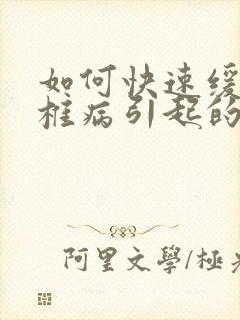 如何快速缓
椎病引起的
阿里文學/極光